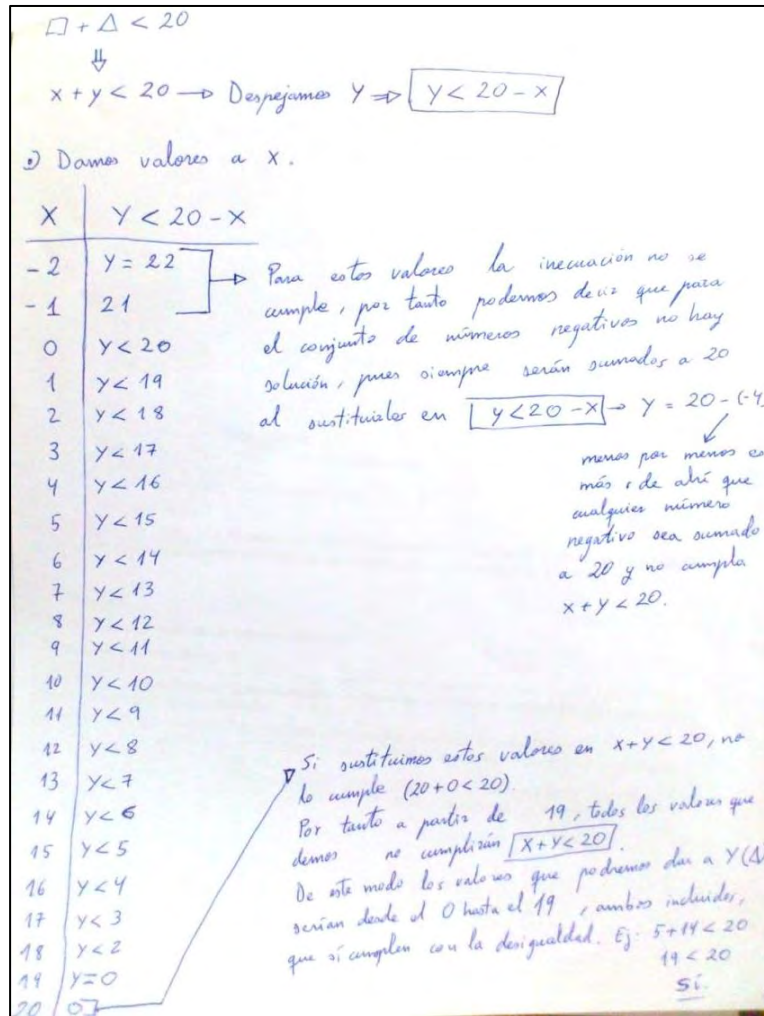 □ + Δ < 20
⇓
x + y < 20 → Despejamos Y ⇒ Y < 20 - X
•) Damos valores a X.
X | Y < 20 - X
-2 | Y = 22
-1 | 21
0 | Y < 20
1 | Y < 19
2 | Y < 18
3 | Y < 17
4 | Y < 16
5 | Y < 15
6 | Y < 14
7 | Y < 13
8 | Y < 12
9 | Y < 11
10 | Y < 10
11 | Y < 9
12 | Y < 8
13 | Y < 7
14 | Y < 6
15 | Y < 5
16 | Y < 4
17 | Y < 3
18 | Y < 2
19 | Y = 0
20 | 0
Para estos valores la inecuación no se
cumple, por tanto podemos decir que para
el conjunto de números negativos no hay
solución, pues siempre serán sumados a 20
al sustituirlos en y < 20 - X → Y = 20 - (-4)
menos por menos es
más, de ahí que
cualquier número
negativo sea sumado
a 20 y no cumpla
x + y < 20.
Si sustituimos estos valores en x + y < 20, no
lo cumple (20 + 0 < 20).
Por tanto a partir de 19, todos los valores que
demos no cumplirán X + Y < 20.
De este modo los valores que podremos dar a Y (Δ
serían desde el 0 hasta el 19, ambos incluidos,
que sí cumplen con la desigualdad. Ej: 5 + 14 < 20
19 < 20
Sí.